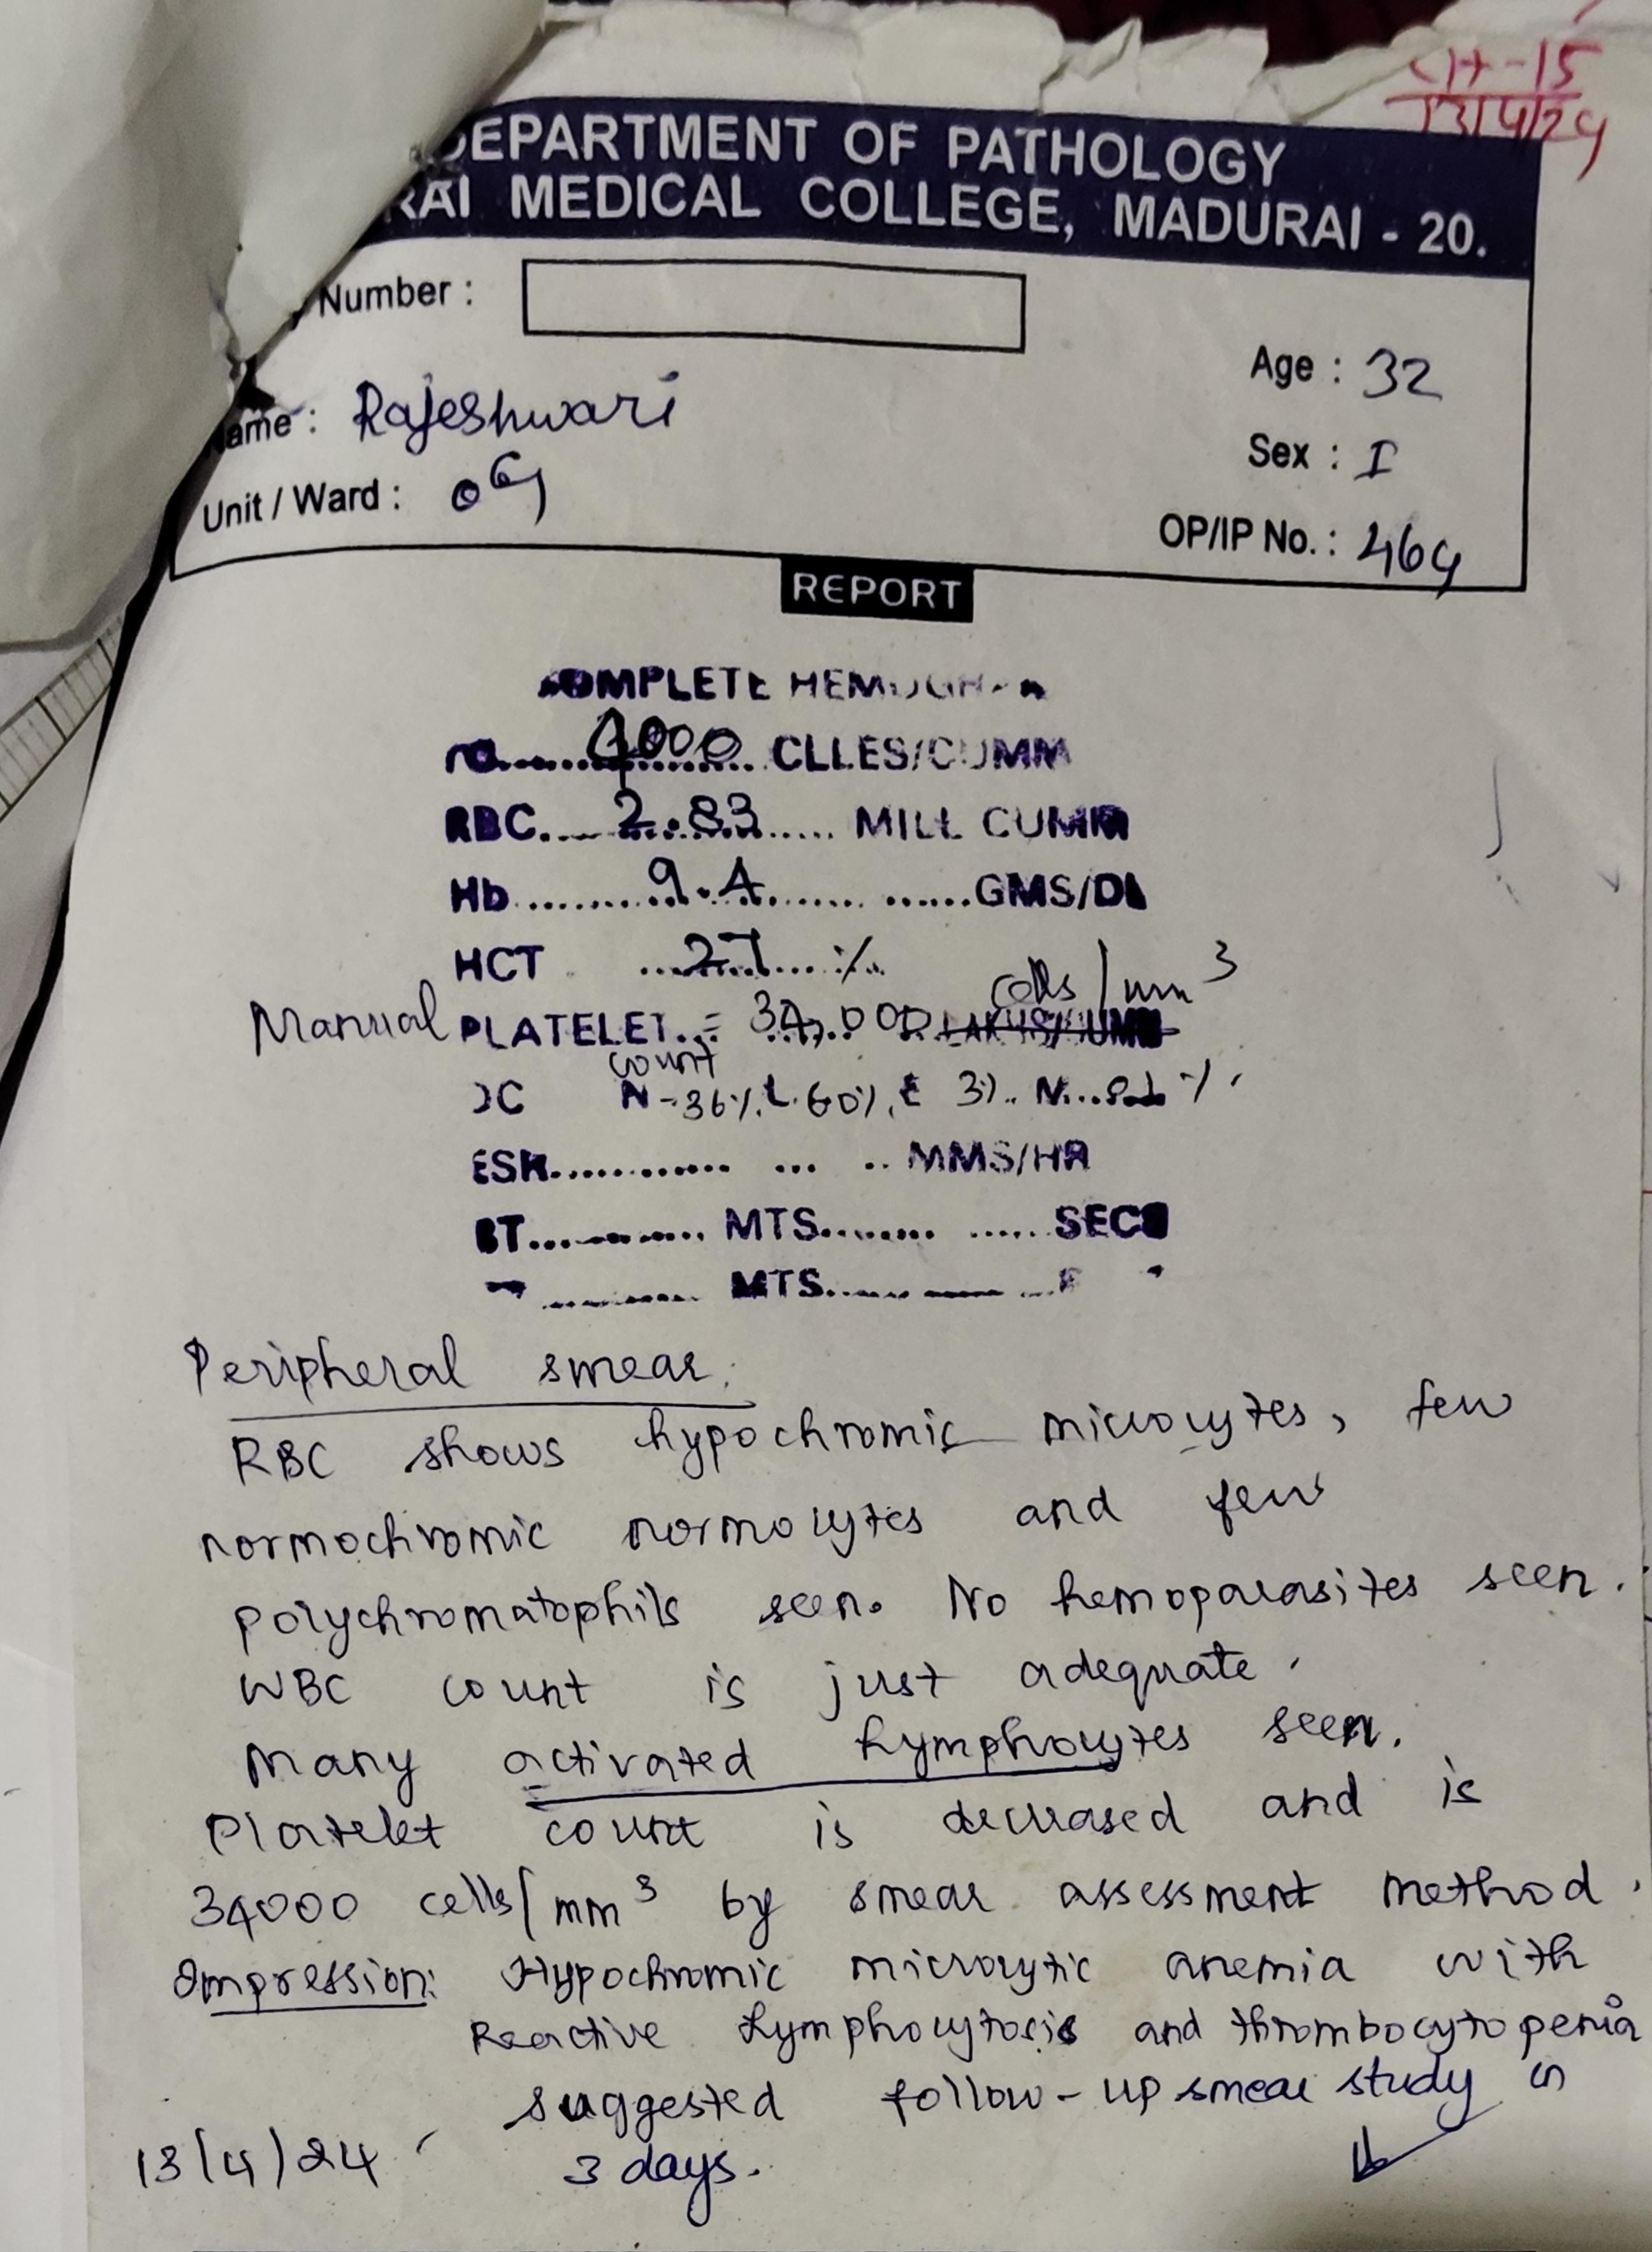 CH-15
13/4/24
DEPARTMENT OF PATHOLOGY
RAI MEDICAL COLLEGE, MADURAI - 20.
Number :
Age : 32
ame : Rajeshwari
Sex : F
Unit / Ward : OG
OP/IP No. : 464
REPORT
COMPLETE HEMOGR
4000 CLLES/CUMM
RBC 2.83 MILL CUMM
Hb 9.4 GMS/DL
HCT 27 %
Manual PLATELET count = 34,000 LAKHS/CUMM cells/mm3
DC N-36%, L 60%, E 3%
ESR MMS/HR
BT MTS SECS
MTS
Peripheral smear:
RBC shows hypochromic microcytes, few
normochromic normocytes and few
polychromatophils seen. No hemoparasites seen.
WBC count is just adequate.
Many activated lymphocytes seen.
Platelet count is decreased and is
34000 cells/mm3 by smear assessment method.
Impression: Hypochromic microcytic anemia with
Reactive Lymphocytosis and thrombocytopenia
suggested follow-up smear study in
13/4/24 3 days.